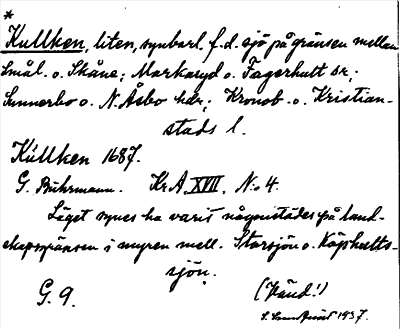 *
Kullken, liten, synbarl. f.d. sjö på gränsen mellan
Smål. o. Skåne; Markaryd o. Fagerhult sr.;
Sunnerbo o. N. Åsbo hdr; Kronob. o. Kristian-
stads l.
Kullken 1687.
G. Buhrmann. Kr.A. XVII. N:o 4.
Läget synes ha varit någonstädes på land-
skapsgränsen i myren mell. Storsjön o. Köphults-
sjön.
G. 9. (Vänd!)
1937.